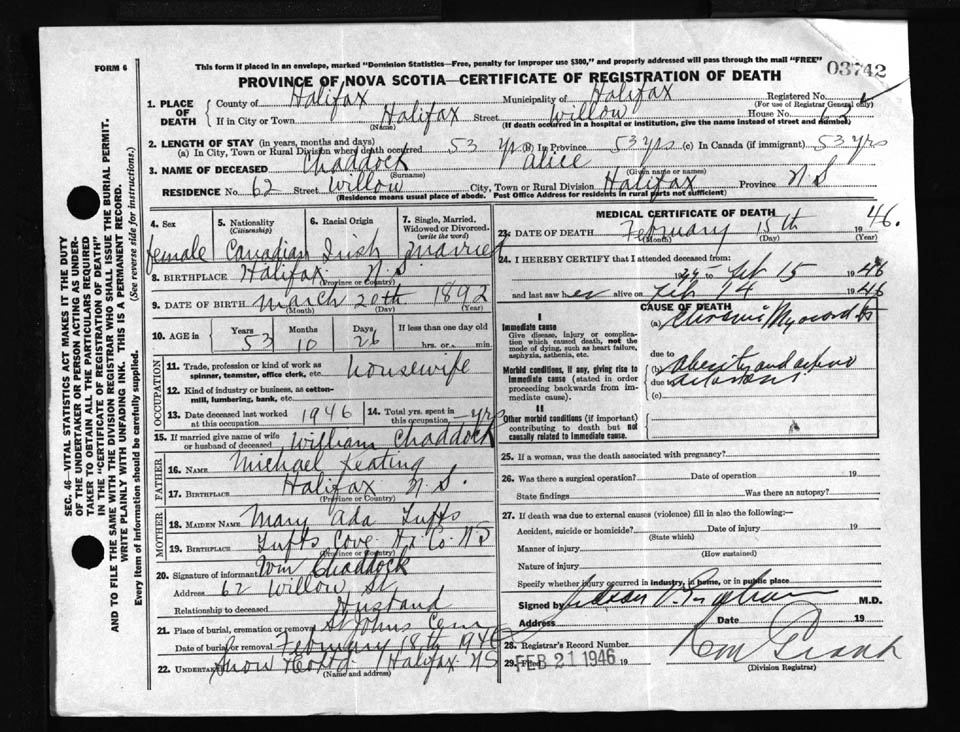 This form if placed in an envelope, marked "Dominion Statistics—Free, penalty for improper use $300," and properly addressed will pass through the mail "FREE"
FORM 6
03742
PROVINCE OF NOVA SCOTIA—CERTIFICATE OF REGISTRATION OF DEATH
1. PLACE OF DEATH
County of Halifax Municipality of Halifax Registered No.
(For use of Registrar General only)
If in City or Town Halifax Street Willow House No. 62
(Name) (If death occurred in a hospital or institution, give the name instead of street and number)
2. LENGTH OF STAY (in years, months and days)
(a) In City, Town or Rural Division where death occurred 53 yrs (B) In Province 53 yrs (c) In Canada (if immigrant) 53 yrs
3. NAME OF DECEASED Chaddock Alice
(Surname) (Given name or names)
RESIDENCE No. 62 Street Willow City, Town or Rural Division Halifax Province N S
(Residence means usual place of abode. Post Office Address for residents in rural parts not sufficient)
4. Sex female
5. Nationality (Citizenship) Canadian
6. Racial Origin Irish
7. Single, Married, Widowed or Divorced. (write the word) Married
8. BIRTHPLACE Halifax N S
(Province or Country)
9. DATE OF BIRTH March 20th 1892
(Month) (Day) (Year)
10. AGE in Years 53 Months 10 Days 26 If less than one day old hrs. or min.
OCCUPATION
11. Trade, profession or kind of work as spinner, teamster, office clerk, etc. housewife
12. Kind of industry or business, as cotton-mill, lumbering, bank, etc.
13. Date deceased last worked at this occupation 1946 14. Total yrs. spent in this occupation yrs
15. If married give name of wife or husband of deceased William Chaddock
FATHER
16. NAME Michael Keating
17. BIRTHPLACE Halifax N.S.
(Province or Country)
MOTHER
18. MAIDEN NAME Mary Ada Tufts
19. BIRTHPLACE Tufts Cove Hx Co. N S
(Province or Country)
20. Signature of informant Wm Chaddock
Address 62 Willow St
Relationship to deceased Husband
21. Place of burial, cremation or removal St Johns Cem
Date of burial or removal February 18th 1946
22. UNDERTAKER Snow Halifax N S
(Name and address)
MEDICAL CERTIFICATE OF DEATH
23. DATE OF DEATH February 15th 1946.
(Month) (Day) (Year)
24. I HEREBY CERTIFY that I attended deceased from
Feb 15 1946
and last saw her alive on Feb 14 1946
CAUSE OF DEATH
I
Immediate cause
Give disease, injury or complication which caused death, not the mode of dying, such as heart failure, asphyxia, asthenia, etc.
(a) Chronic Myocarditis
Morbid conditions, if any, giving rise to immediate cause (stated in order proceeding backwards from immediate cause).
due to
(b) obesity and
due to
(c)
II
Other morbid conditions (if important) contributing to death but not causally related to immediate cause.
25. If a woman, was the death associated with pregnancy?
26. Was there a surgical operation? Date of operation 19
State findings Was there an autopsy?
27. If death was due to external causes (violence) fill in also the following:—
Accident, suicide or homicide? Date of injury 19
(State which)
Manner of injury
(How sustained)
Nature of injury
Specify whether injury occurred in industry, in home, or in public place
Signed by M.D.
Address Date 19
28. Registrar's Record Number
29. Filed FEB 21 1946 19
(Division Registrar)
SEC. 46—VITAL STATISTICS ACT MAKES IT THE DUTY
OF THE UNDERTAKER OR PERSON ACTING AS UNDER-
TAKER TO OBTAIN ALL THE PARTICULARS REQUIRED
IN THE "CERTIFICATE OF REGISTRATION OF DEATH"
AND TO FILE THE SAME WITH THE DIVISION REGISTRAR WHO SHALL ISSUE THE BURIAL PERMIT.
WRITE PLAINLY WITH UNFADING INK. THIS IS A PERMANENT RECORD.
Every item of information should be carefully supplied. (See reverse side for instructions.)